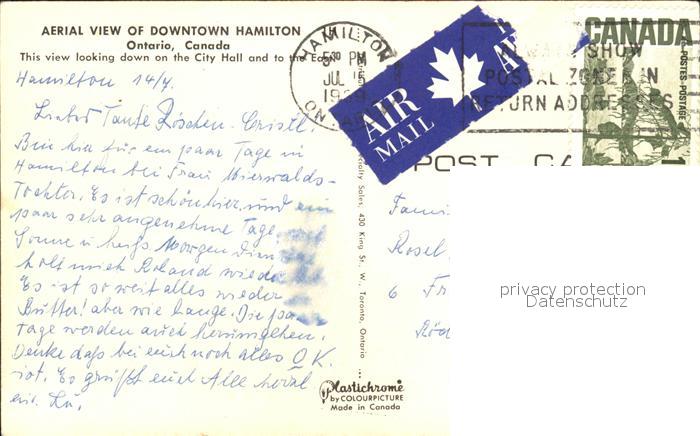 AERIAL VIEW OF DOWNTOWN HAMILTON
Ontario, Canada
This view looking down on the City Hall and to the East
Hamilton 14/7.
Liebe Tante Röschen - Cristl.
Bin hier für ein paar Tage in
Hamilton bei Frau
Tochter. Es ist schön hier und ein
paar sehr angenehme Tage
Sonne u heiß. Morgen
holt mich Roland wieder
Es ist so weit alles wieder
Butter! aber wie lange. Die paar
Tage werden auch herumgehen.
Denke daß bei euch noch alles O.K.
ist. Es grüßt euch Alle
HAMILTON
5 30 PM
JUL 15
19
ONTARIO
AIR
MAIL
ALWAYS SHOW
POSTAL ZONES IN
RETURN ADDRESSES
CANADA
POSTES-POSTAGE
1
POST CA
Specialty Sales, 430 King St., W., Toronto, Ontario
Fami
Rosel
6 Fr
Röd
privacy protection
Datenschutz
Plastichrome
by COLOURPICTURE
Made in Canada